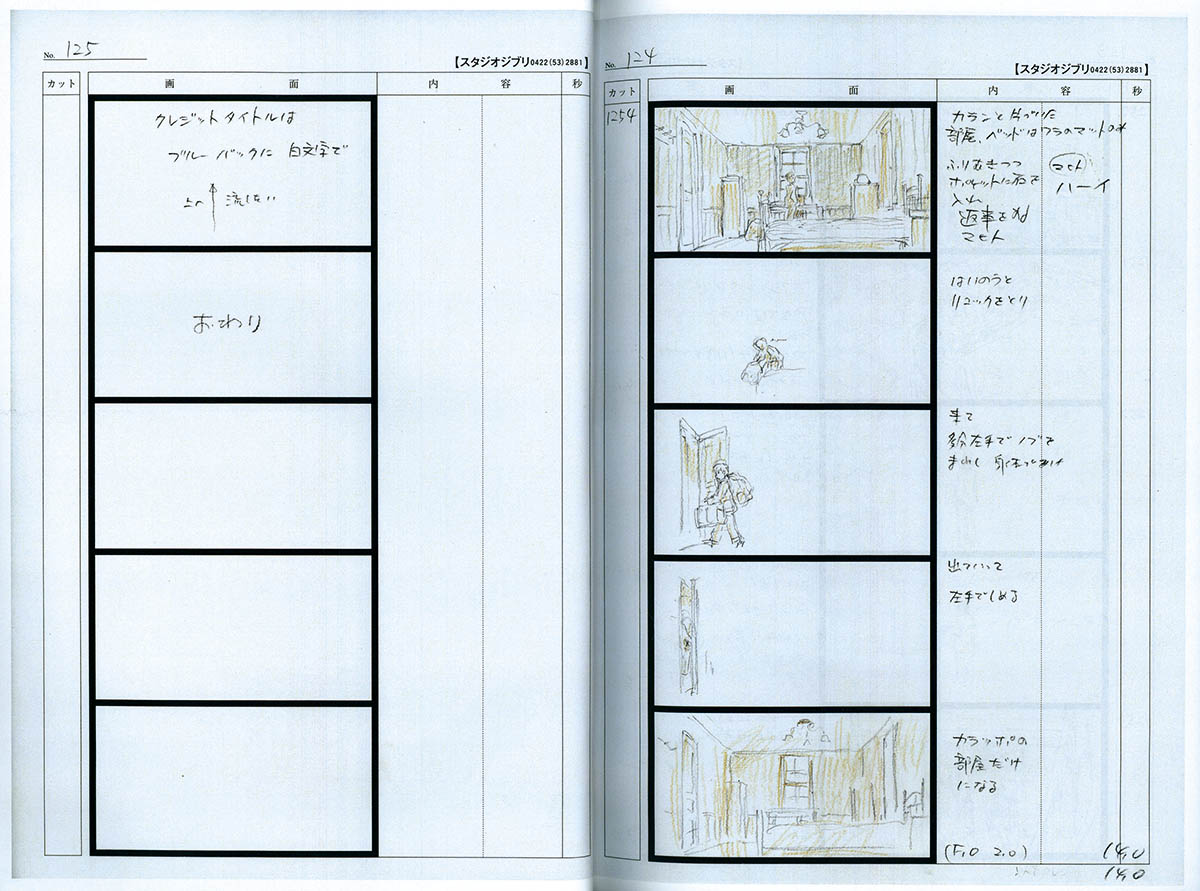 No. 124
【スタジオジブリ0422(53)2881】
カット 画面 内容 秒
1254
カランと片づいた
部屋、ベッドはワラのマットのみ
ふりむきつつ
ポケットに石を
入れ
返事をする
マヒト
マヒト
ハーイ
はいのうと
リュックをとり
来て
多分左手でノブを
まわし
出ていって
左手でしめる
カラッポの
部屋だけ
になる
(F,O 2.0)
14,0
14,0
No. 125
【スタジオジブリ0422(53)2881】
カット 画面 内容 秒
クレジットタイトルは
ブルーバックに 白文字で
上へ 流したい
おわり